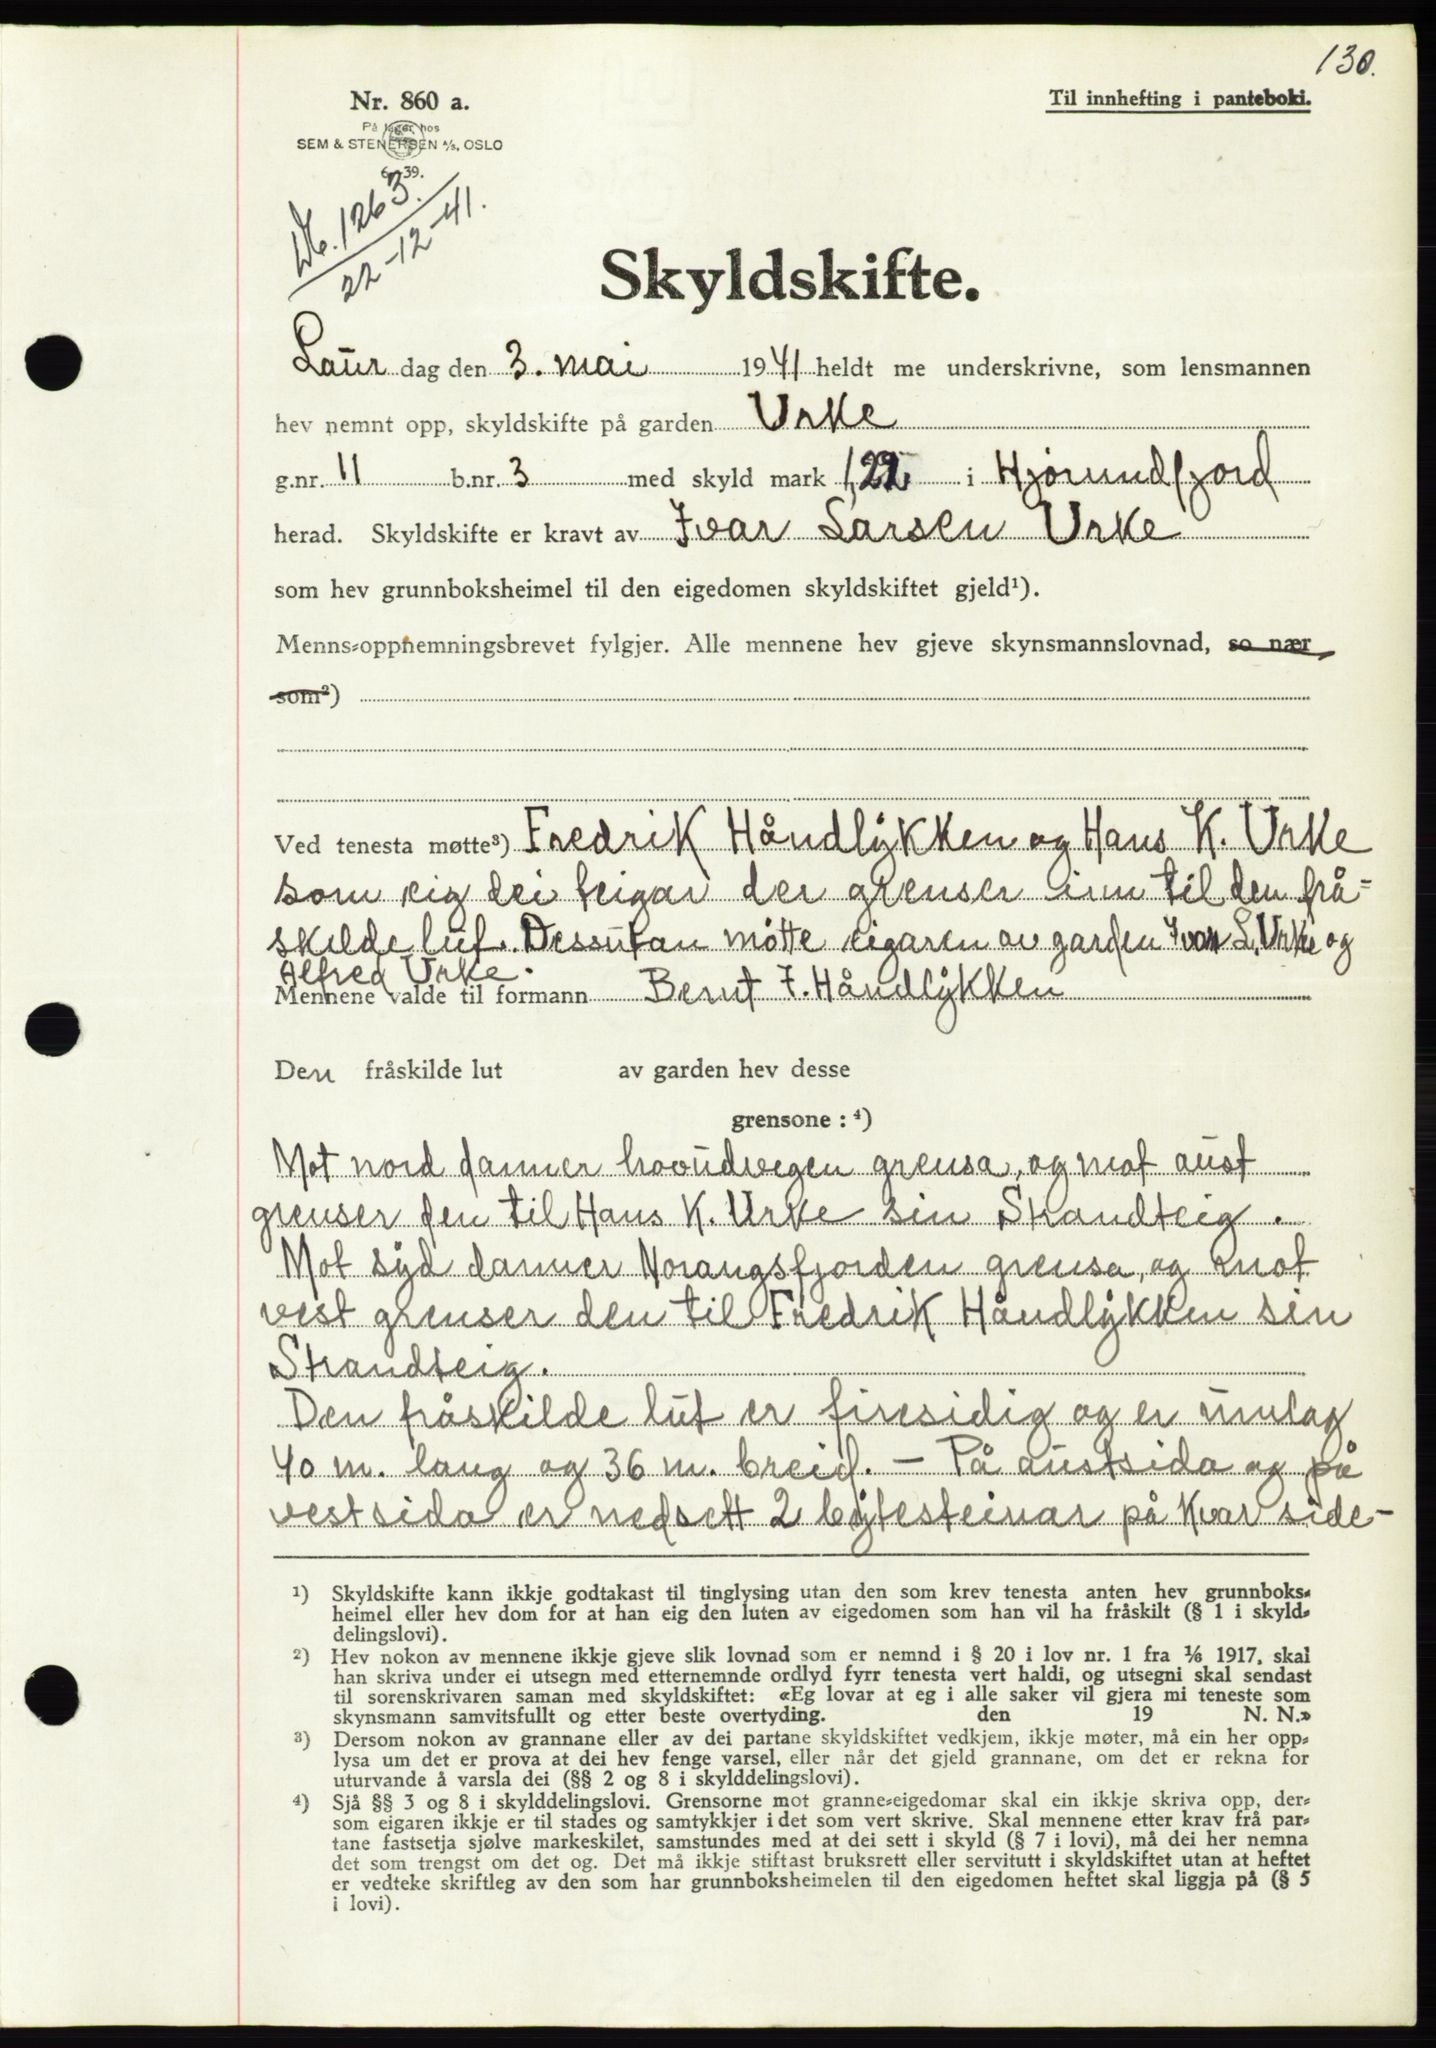 130.
Nr. 860 a.
Til innhefting i panteboki.
På lager hos
SEM & STENERSEN A/S, OSLO
39.
1263.
22-12-41.
Skyldskifte.
Laur dag den 3. mai 1941 heldt me underskrivne, som lensmannen
hev nemnt opp, skyldskifte på garden Urke
g.nr. 11 b.nr. 3 med skyld mark i Hjørundfjord
herad. Skyldskifte er kravt av Ivar Larsen Urke
som hev grunnboksheimel til den eigedomen skyldskiftet gjeld¹).
Menns-oppnemningsbrevet fylgjer. Alle mennene hev gjeve skynsmannslovnad, so nær
som²)
Ved tenesta møtte³) Fredrik Håndlykken og Hans K. Urke
som eig dei teigar der grenser inn til den frå=
skilde lut. Dessutan møtte eigaren av garden Ivar L. Urke og
Alfred Urke.
Mennene valde til formann Bernt J. Håndlykken
Den fråskilde lut av garden hev desse
grensone : ⁴)
Mot nord danner hovudvegen grensa, og mot aust
grenser den til Hans K. Urke sin Strandteig.
Mot syd danner Norangsfjorden grensa, og mot
vest grenser den til Fredrik Håndlykken sin
Strandteig.
Den fråskilde lut er firesidig og er umlag
40 m. lang og 36 m. breid. – På austsida og på
vestsida er nedsett 2 bytesteinar på kvar side-
¹) Skyldskifte kann ikkje godtakast til tinglysing utan den som krev tenesta anten hev grunnboks-
heimel eller hev dom for at han eig den luten av eigedomen som han vil ha fråskilt (§ 1 i skyld-
delingslovi).
²) Hev nokon av mennene ikkje gjeve slik lovnad som er nemnd i § 20 i lov nr. 1 fra 1/6 1917, skal
han skriva under ei utsegn med etternemnde ordlyd fyrr tenesta vert haldi, og utsegni skal sendast
til sorenskrivaren saman med skyldskiftet: «Eg lovar at eg i alle saker vil gjera mi teneste som
skynsmann samvitsfullt og etter beste overtyding. den 19 N. N.»
³) Dersom nokon av grannane eller av dei partane skyldskiftet vedkjem, ikkje møter, må ein her opp-
lysa um det er prova at dei hev fenge varsel, eller når det gjeld grannane, om det er rekna for
uturvande å varsla dei (§§ 2 og 8 i skylddelingslovi).
⁴) Sjå §§ 3 og 8 i skylddelingslovi. Grensorne mot granne-eigedomar skal ein ikkje skriva opp, der-
som eigaren ikkje er til stades og samtykkjer i det som vert skrive. Skal mennene etter krav frå par-
tane fastsetja sjølve markeskilet, samstundes med at dei sett i skyld (§ 7 i lovi), må dei her nemna
det som trengst om det og. Det må ikkje stiftast bruksrett eller servitutt i skyldskiftet utan at heftet
er vedteke skriftleg av den som har grunnboksheimelen til den eigedomen heftet skal liggja på (§ 5
i lovi).